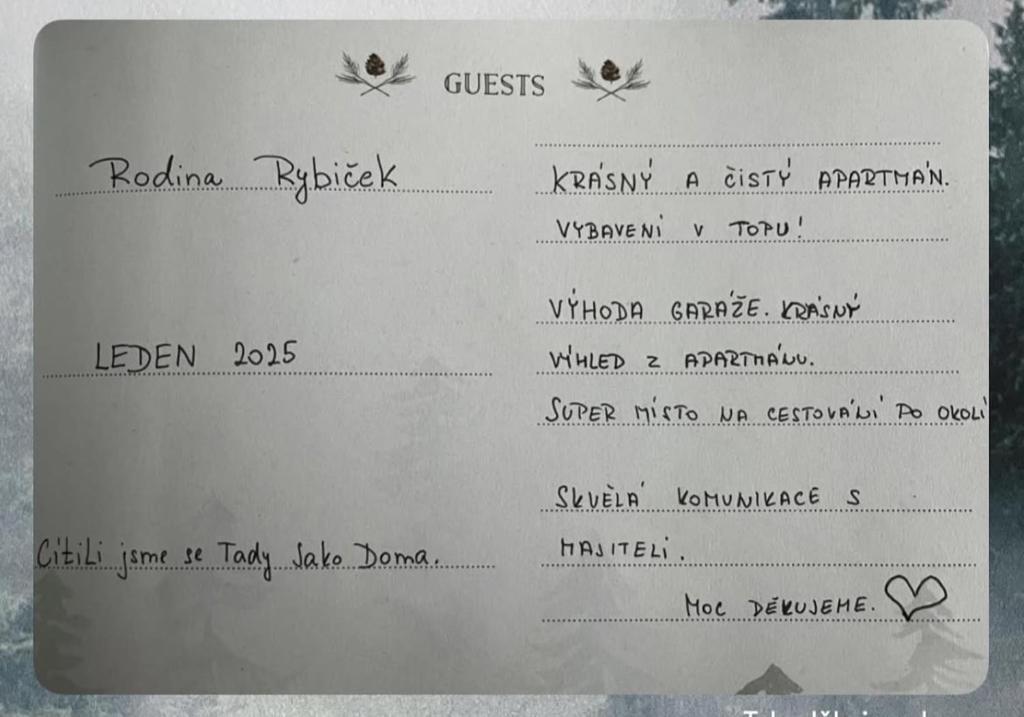 GUESTS
Rodina Rybiček
LEDEN 2025
Cítili jsme se Tady Jako Doma.
KRÁSNÝ A ČISTÝ APARTMÁN.
VYBAVENÍ V TOPU!
VÝHODA GARÁŽE. KRÁSNÝ
VÝHLED Z APARTMÁNU.
SUPER MÍSTO NA CESTOVÁNÍ PO OKOLÍ
SKVĚLÁ KOMUNIKACE S
MAJITELI.
MOC DĚKUJEME.